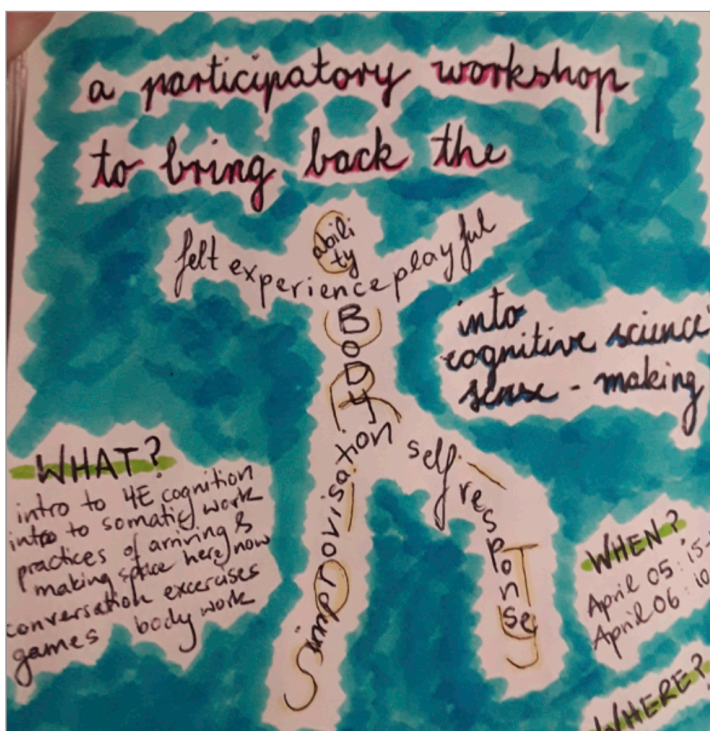 a participatory workshop
to bring back the
abili
ty
felt experience playful
BODY
improvisation
self-
response
into
cognitive science
sense-making
WHAT?
intro to 4E cognition
intro to somatic work
practices of arriving &
making space here, now
conversation excercises
games body work
WHEN?
April 05: 15-
April 06: 10
WHERE?